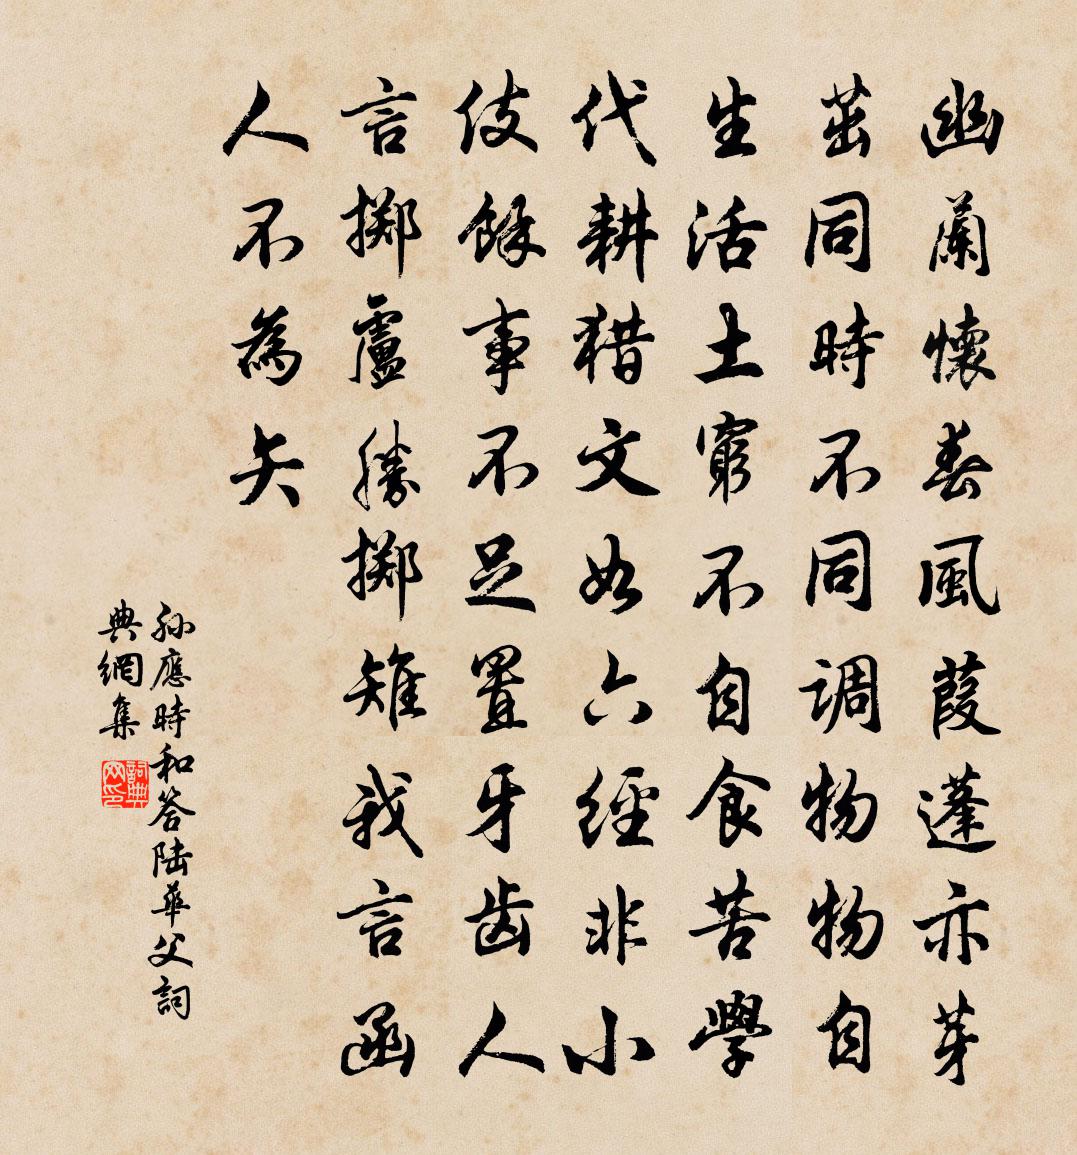 幽蘭懷春風葭蓬亦芽
茁同時不同調物物自
生活土窮不自食苦學
代耕猎文如六經非小
伎餘事不足置牙齒人
言擲盧勝擲雉我言函
人不為矢
孫應時和答陆華父詞
典網集
詞典网印